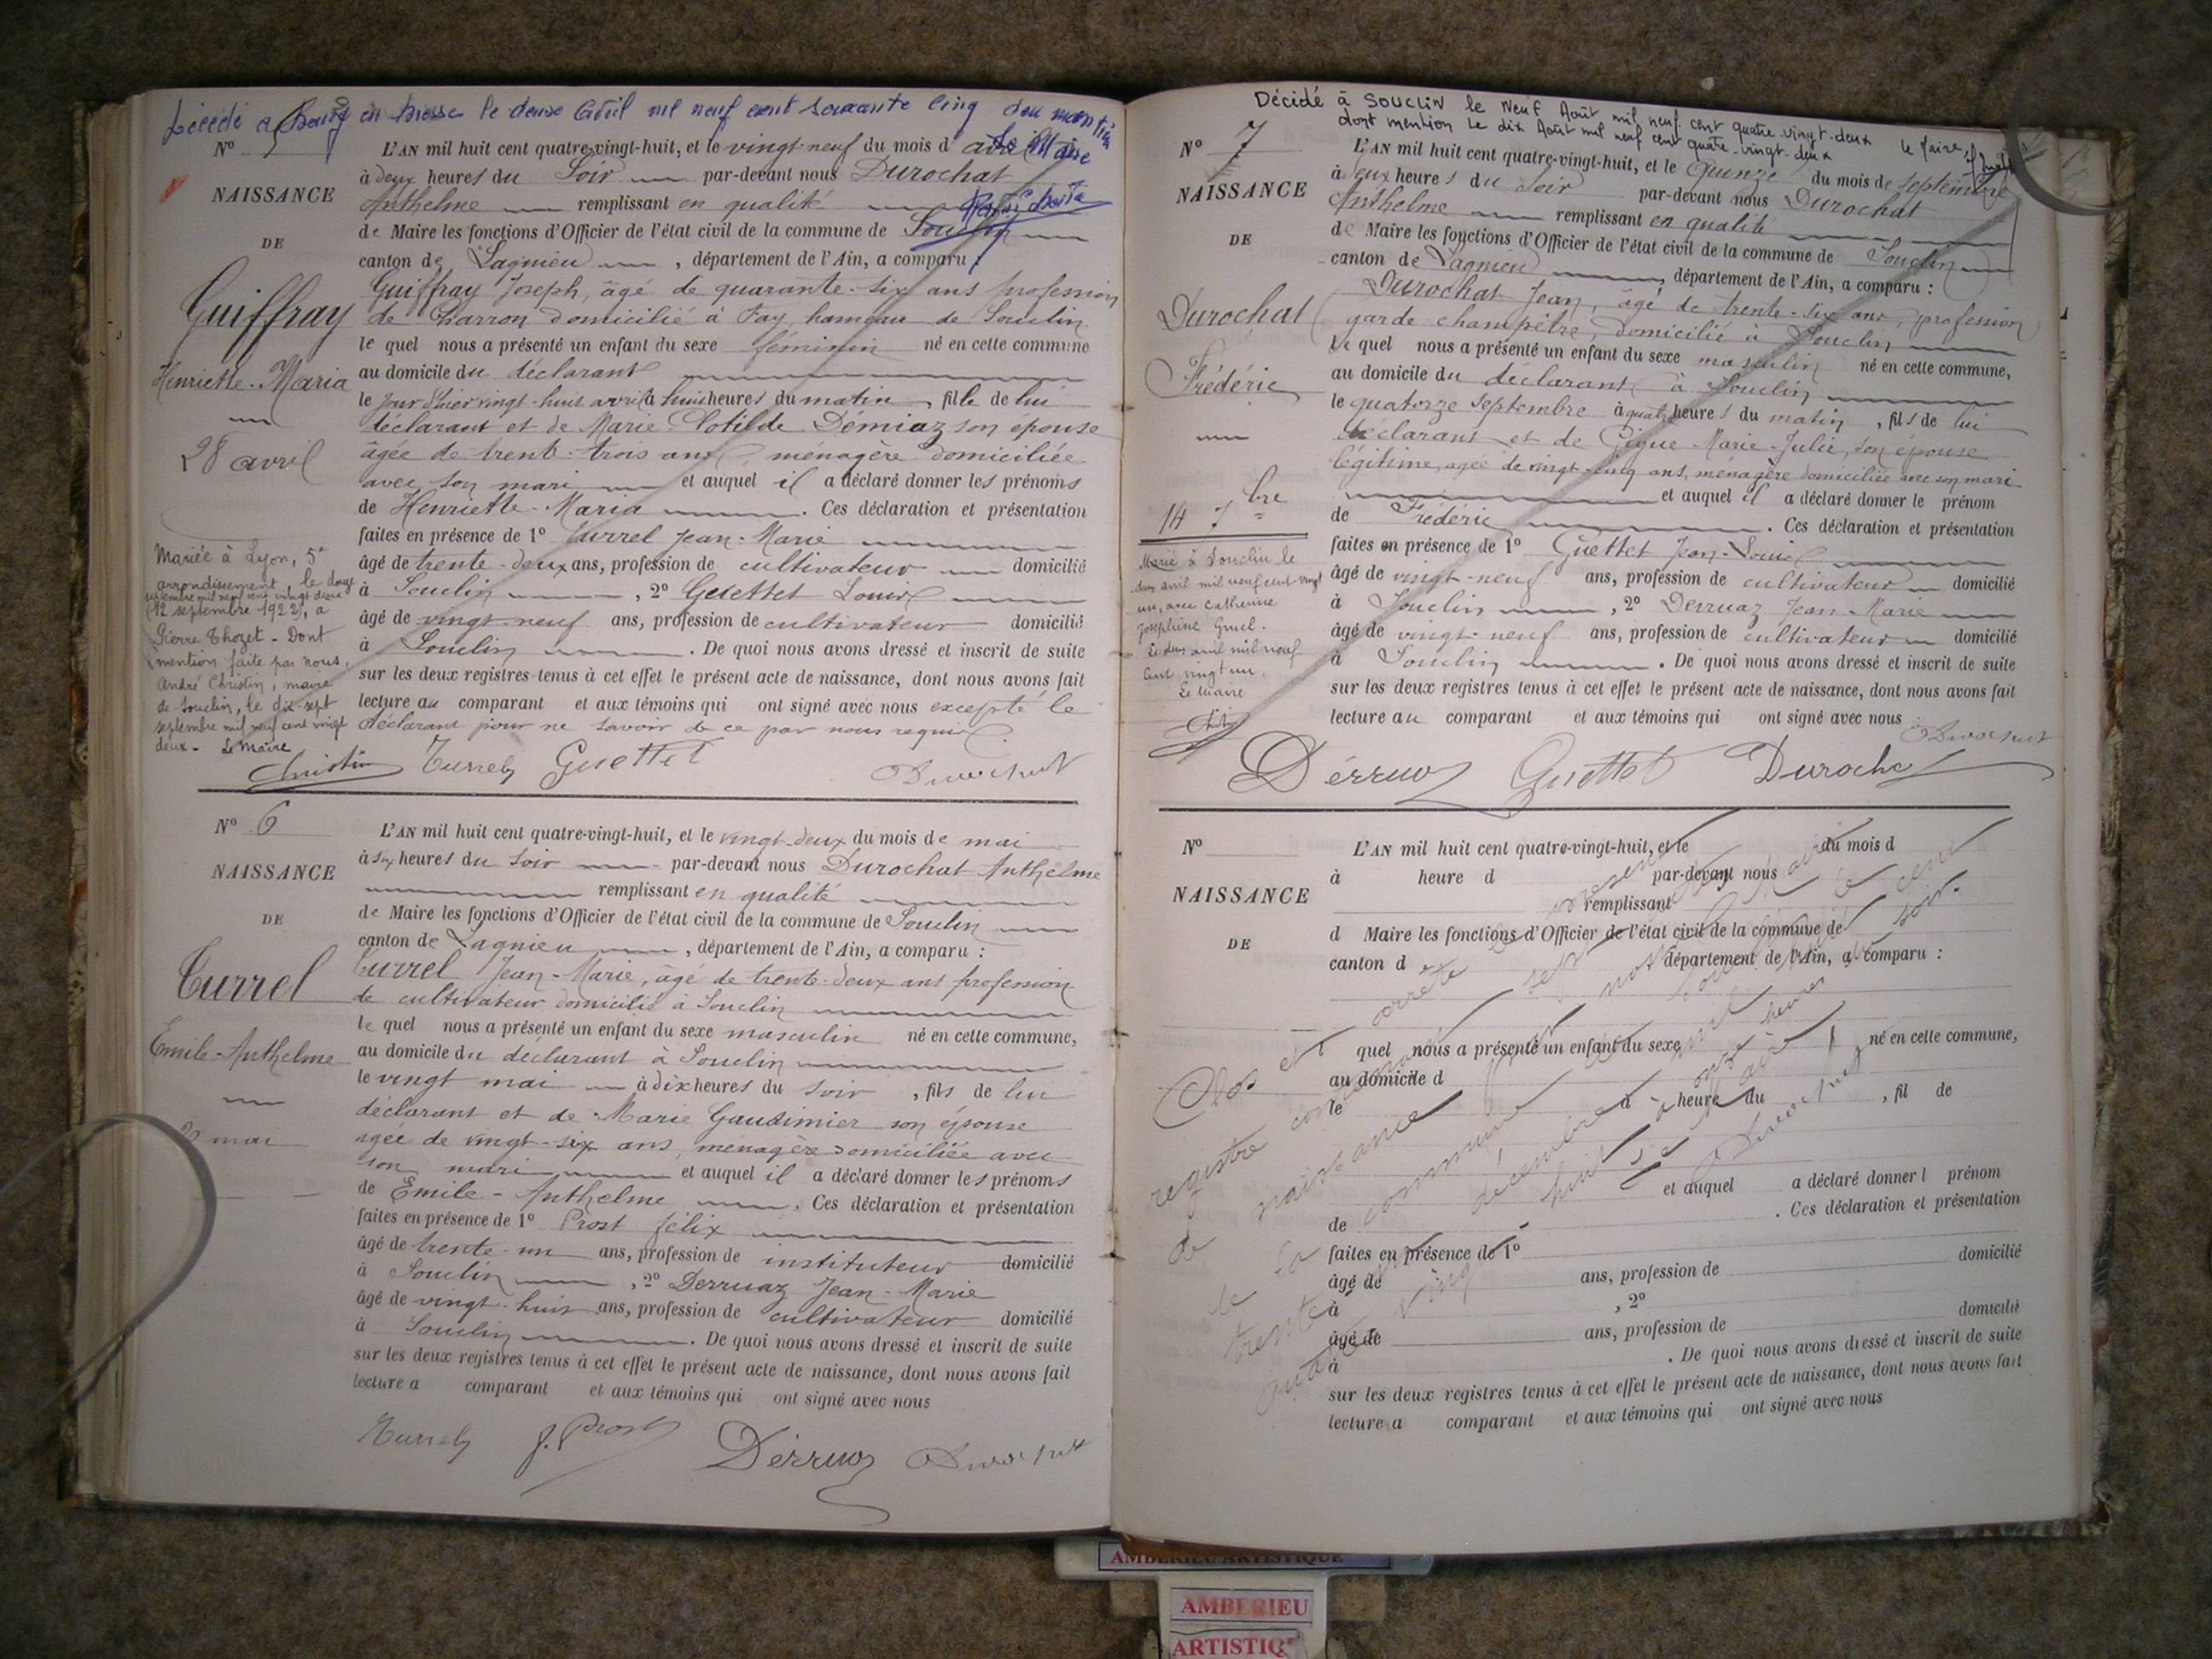 Décédé à Bourg en Bresse le douze Avril mil neuf cent soixante cinq dont mention
Le Maire
N° 5
NAISSANCE
DE
Guiffray
Henriette-Maria
28 avril
Mariée à Lyon, 5e
arrondissement, le douze
septembre mil neuf cent vingt deux
(12 septembre 1922), à
Pierre Thozet - Dont
mention faite par nous,
André Christin, maire
de Souclin, le dix-sept
septembre mil neuf cent vingt
deux - Le Maire
Christin
L'AN mil huit cent quatre-vingt-huit, et le vingt-neuf du mois d'avril
à deux heures du Soir par-devant nous Durochat
Anthelme remplissant en qualité
de Maire les fonctions d'Officier de l'état civil de la commune de Souclin
canton de Lagnieu, département de l'Ain, a comparu :
Guiffray Joseph, âgé de quarante-six ans profession
de charron domicilié à Fay hameau de Souclin
le quel nous a présenté un enfant du sexe féminin né en cette commune
au domicile du déclarant
le jour d'hier vingt-huit avril à huit heures du matin, fille de lui
déclarant et de Marie Clotilde Démiaz son épouse
âgée de trente-trois ans, ménagère domiciliée
avec son mari et auquel il a déclaré donner les prénoms
de Henriette-Maria. Ces déclaration et présentation
faites en présence de 1° Turrel Jean-Marie
âgé de trente-deux ans, profession de cultivateur domicilié
à Souclin, 2° Guettet Louis
âgé de vingt-neuf ans, profession de cultivateur domicilié
à Souclin. De quoi nous avons dressé et inscrit de suite
sur les deux registres tenus à cet effet le présent acte de naissance, dont nous avons fait
lecture au comparant et aux témoins qui ont signé avec nous excepté le
déclarant pour ne savoir de ce par nous requis.
Turrel Guettet Durochat
N° 6
NAISSANCE
DE
Turrel
Emile-Anthelme
20 mai
L'AN mil huit cent quatre-vingt-huit, et le vingt-deux du mois de mai
à six heures du soir par-devant nous Durochat Anthelme
remplissant en qualité
de Maire les fonctions d'Officier de l'état civil de la commune de Souclin
canton de Lagnieu, département de l'Ain, a comparu :
Turrel Jean-Marie, âgé de trente-deux ans profession
de cultivateur domicilié à Souclin
le quel nous a présenté un enfant du sexe masculin né en cette commune,
au domicile du déclarant à Souclin
le vingt mai à dix heures du soir, fils de lui
déclarant et de Marie Gaudimier son épouse
agée de vingt-six ans, ménagère domiciliée avec
son mari et auquel il a déclaré donner les prénoms
de Emile-Anthelme. Ces déclaration et présentation
faites en présence de 1° Prost félix
âgé de trente-un ans, profession de instituteur domicilié
à Souclin, 2° Derruaz Jean-Marie
âgé de vingt-huit ans, profession de cultivateur domicilié
à Souclin. De quoi nous avons dressé et inscrit de suite
sur les deux registres tenus à cet effet le présent acte de naissance, dont nous avons fait
lecture a comparant et aux témoins qui ont signé avec nous
Turrel f. Prost Dérruaz Durochat
Décidé à SOUCLIN le Neuf Août mil neuf cent quatre-vingt-deux
dont mention Le dix Août mil neuf cent quatre-vingt-deux Le Maire,
N° 7
NAISSANCE
DE
Durochat
Frédéric
14 7bre
Marié à Souclin le
deux avril mil neuf cent vingt
un, avec Catherine
Joséphine Gruel.
Le deux avril mil neuf
cent vingt un.
Le Maire
L'AN mil huit cent quatre-vingt-huit, et le Quinze du mois de septembre
à deux heures du Soir par-devant nous Durochat
Anthelme remplissant en qualité
de Maire les fonctions d'Officier de l'état civil de la commune de Souclin
canton de Lagnieu, département de l'Ain, a comparu :
Durochat Jean, âgé de trente-six ans, profession
garde champêtre, domicilié à Souclin
le quel nous a présenté un enfant du sexe masculin né en cette commune,
au domicile du déclarant à Souclin
le quatorze septembre à quatre heures du matin, fils de lui
déclarant et de Marie-Julie, son épouse
légitime, agée de vingt-cinq ans, ménagère domiciliée avec son mari
et auquel il a déclaré donner le prénom
de Frédéric. Ces déclaration et présentation
faites en présence de 1° Guettet Jean-Louis
âgé de vingt-neuf ans, profession de cultivateur domicilié
à Souclin, 2° Derruaz Jean-Marie
âgé de vingt-neuf ans, profession de cultivateur domicilié
à Souclin. De quoi nous avons dressé et inscrit de suite
sur les deux registres tenus à cet effet le présent acte de naissance, dont nous avons fait
lecture au comparant et aux témoins qui ont signé avec nous
Durochat
Dérruaz Guettet Durochat
N°
NAISSANCE
DE
L'AN mil huit cent quatre-vingt-huit, et le du mois d
à heure d par-devant nous
remplissant
d Maire les fonctions d'Officier de l'état civil de la commune de
canton d département de l'Ain, a comparu :
quel nous a présenté un enfant du sexe né en cette commune,
au domicile d
le à heure du, fil de
et auquel a déclaré donner l prénom
de. Ces déclaration et présentation
faites en présence de 1°
âgé de ans, profession de domicilié
à, 2°
âgé de ans, profession de domicilié
à. De quoi nous avons dressé et inscrit de suite
sur les deux registres tenus à cet effet le présent acte de naissance, dont nous avons fait
lecture a comparant et aux témoins qui ont signé avec nous
Clos et arrêté le présent
registre contenant sept
naissances par nous Maire
de la commune de Souclin le
trente
décembre mil huit cent
quatre vingt huit à onze heures du soir.
Le Maire
Durochat
AMBERIEU ARTISTIQUE
AMBERIEU
ARTISTIQ